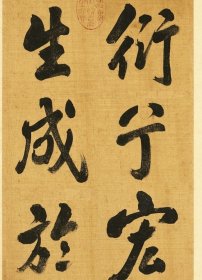 衍亍宏
生成於